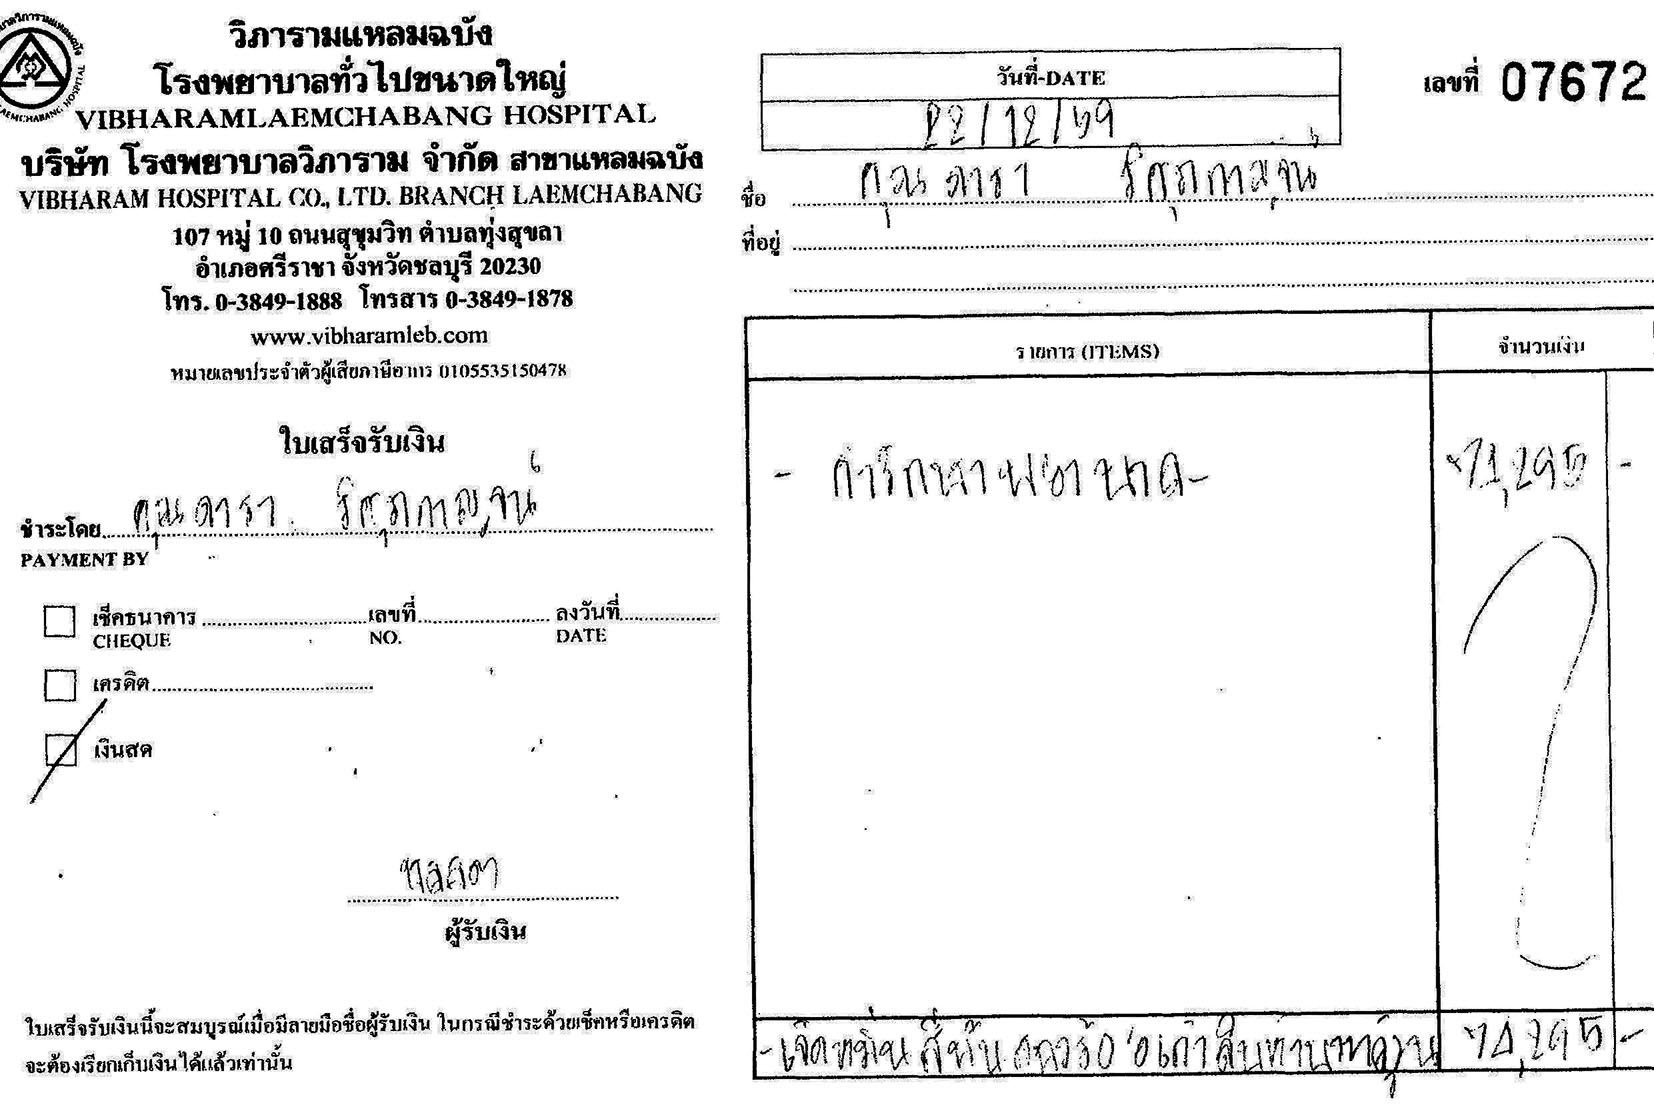 วิภารามแหลมฉบัง
โรงพยาบาลทั่วไปขนาดใหญ่
VIBHARAMLAEMCHABANG HOSPITAL
บริษัท โรงพยาบาลวิภาราม จำกัด สาขาแหลมฉบัง
VIBHARAM HOSPITAL CO., LTD. BRANCH LAEMCHABANG
107 หมู่ 10 ถนนสุขุมวิท ตำบลทุ่งสุขลา
อำเภอศรีราชา จังหวัดชลบุรี 20230
โทร. 0-3849-1888 โทรสาร 0-3849-1878
www.vibharamleb.com
หมายเลขประจำตัวผู้เสียภาษีอากร 0105535150478
ใบเสร็จรับเงิน
ชำระโดย คุณ ดารา
PAYMENT BY
เช็คธนาคาร เลขที่ ลงวันที่
CHEQUE NO. DATE
เครดิต
เงินสด
ผู้รับเงิน
ใบเสร็จรับเงินนี้จะสมบูรณ์เมื่อมีลายมือชื่อผู้รับเงิน ในกรณีชำระด้วยเช็คหรือเครดิต
จะต้องเรียกเก็บเงินได้แล้วเท่านั้น
วันที่-DATE
22/12/59
เลขที่ 07672
ชื่อ คุณ ดารา
ที่อยู่
รายการ (ITEMS) จำนวนเงิน
- ค่ารักษาพยาบาล - 74,295 -
- เจ็ดหมื่นสี่พันสองร้อยเก้าสิบห้าบาทถ้วน 74,295 -